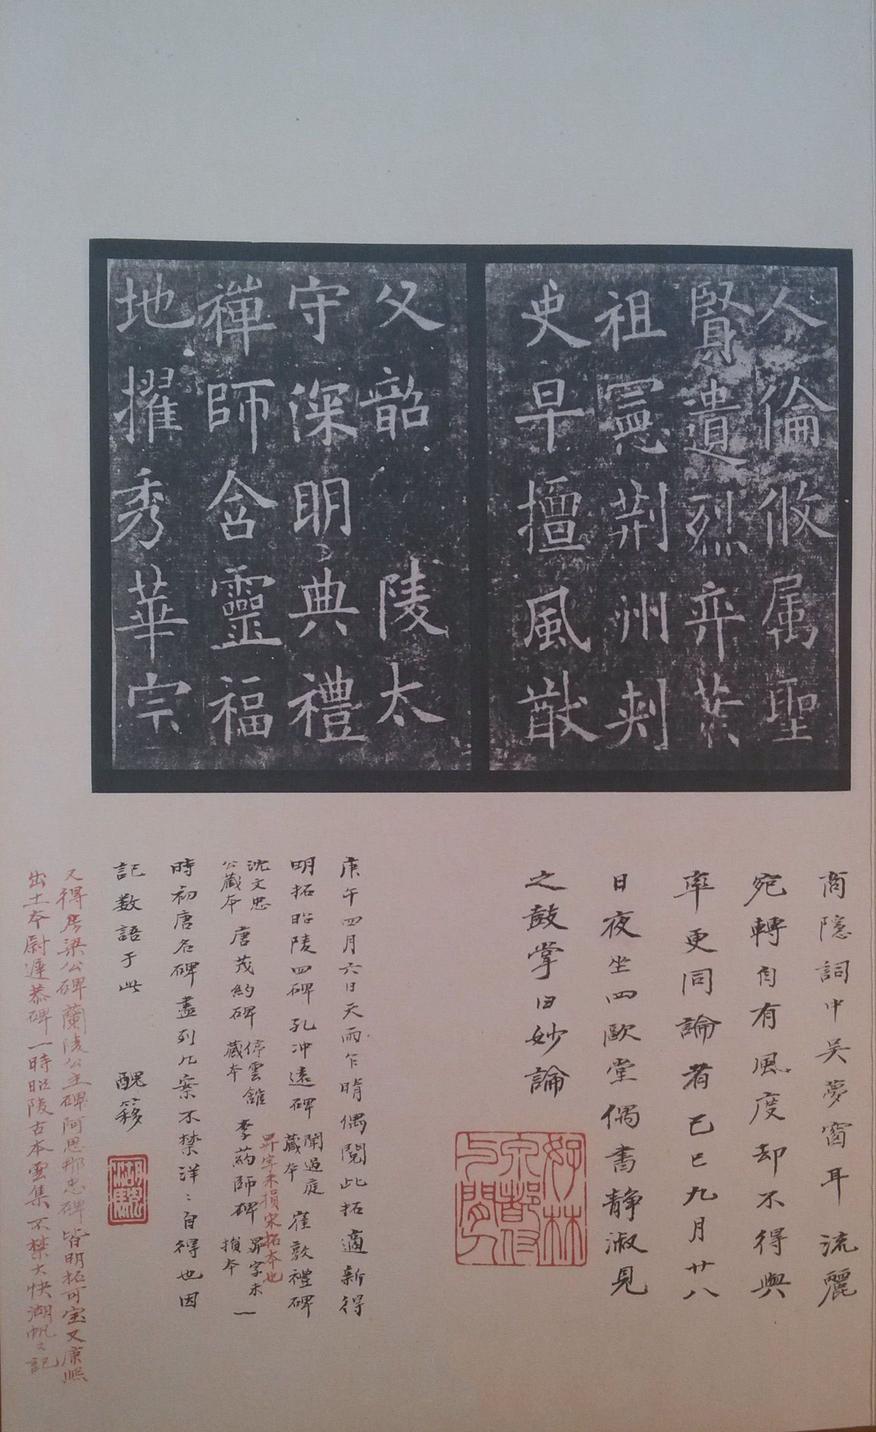 人倫攸属聖
賢遺烈弈葉
祖憲荆州刾
史早擅風猷
父韶 陵太
守深明典禮
禪師含靈福
地擢秀華宗
商隱詞中吴夢窗耳流麗
宛轉自有風度却不得與
率更同論者己巳九月廿八
日夜坐四歐堂偶書静淑見
之鼓掌曰妙論
庚午四月六日天雨乍晴偶閲此拓適新得
明拓昭陵四碑孔冲遠碑聞過庭藏本崔敦禮碑
沈文忠公藏本唐茂約碑停雲館藏本李葯師碑昇字未損本一
昇字未損宋拓本也
時初唐名碑盡列几案不禁洋〻自得也因
記数語于此 醜簃
又得房梁公碑蘭陵公主碑阿思那忠碑皆明拓可宝又康熙
出土本尉遲恭碑一時昭陵古本雲集不禁大快湖帆又記